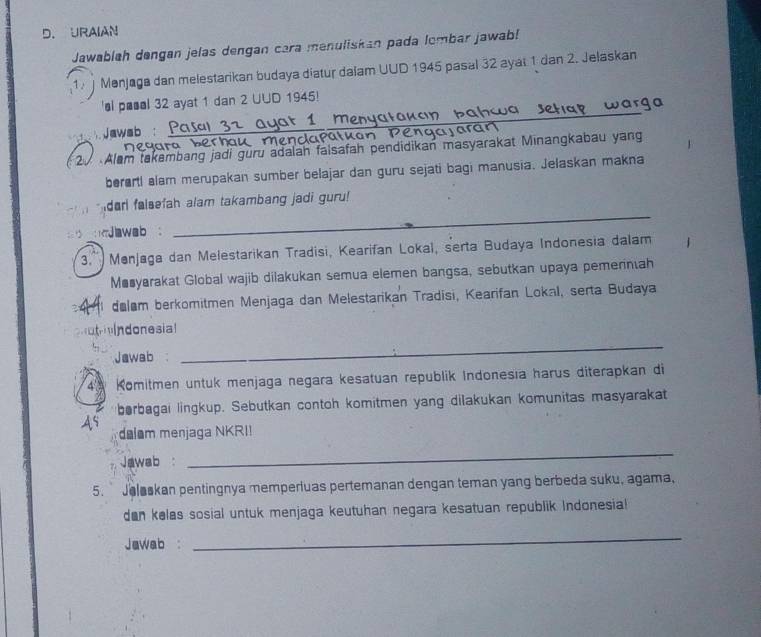 D. URAIAN
Jawablah dengan jelas dengan cara menuliskan pada lembar jawab!
1. Menjaga dan melestarikan budaya diatur dalam UUD 1945 pasal 32 ayat 1 dan 2. Jelaskan
isi pasal 32 ayat 1 dan 2 UUD 1945!
Jawab : Pasal 32 ayat 1 menyatakan bahwa setiap warga
negara berhak mendapatkan Pengajaran
2. Alam takambang jadi guru adalah falsafah pendidikan masyarakat Minangkabau yang
berarti alam merupakan sumber belajar dan guru sejati bagi manusia. Jelaskan makna
dari falsafah alam takambang jadi guru!
Jawab :
3. Menjaga dan Melestarikan Tradisi, Kearifan Lokal, serta Budaya Indonesia dalam
Masyarakat Global wajib dilakukan semua elemen bangsa, sebutkan upaya pemerintah
dalam berkomitmen Menjaga dan Melestarikan Tradisi, Kearifan Lokal, serta Budaya
Indonesia!
Jawab :
4. Komitmen untuk menjaga negara kesatuan republik Indonesia harus diterapkan di
berbagai lingkup. Sebutkan contoh komitmen yang dilakukan komunitas masyarakat
dalam menjaga NKRI!
Jawab :
5. Jelaskan pentingnya memperluas pertemanan dengan teman yang berbeda suku, agama,
dan kelas sosial untuk menjaga keutuhan negara kesatuan republik Indonesia!
Jawab :